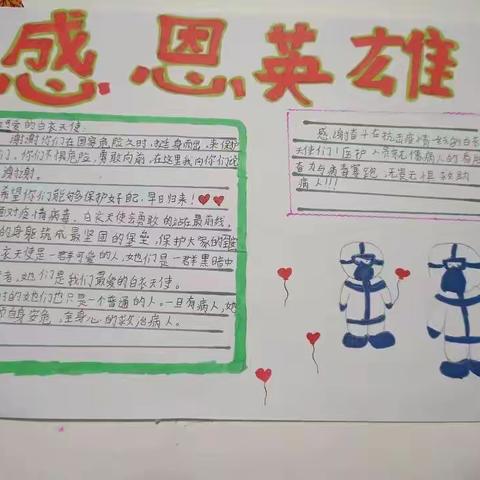 感恩英雄
爱的白衣天使:
谢谢你们在国家危险之时,挺身而出,来保护
们,你们不惧危险,勇敢向前,在这里我向你们说
谢谢。
希望你们能够保护好自己,早日归来!
面对疫情病毒,白衣天使去勇敢的
的身躯筑成最坚固的堡垒,保护大家的
衣天使是一群可爱的人,她们是一群黑暗中
者,她们是我们最爱的白衣天使。
时的她们也只是一个普通的人。一旦有病人,她
自身安危,全身心的救治病人。
感谢奋斗在抗击疫情
天使们!医护人员
奋力与病毒赛跑,
病人!!!